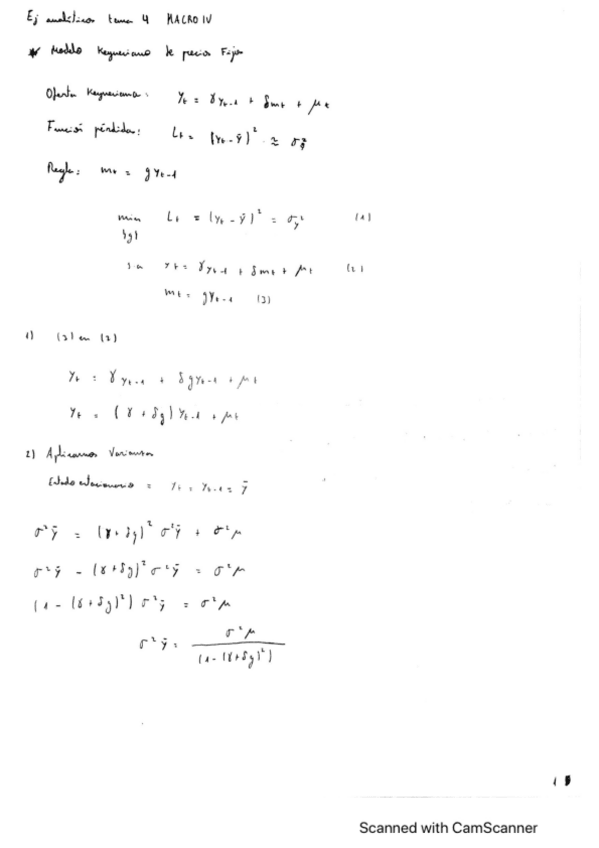 Ej analíticos tema 4 MACRO IV
* Modelo Keynesiano de precios Fijos
Oferta Keynesiana: yt = γyt-1 + δmt + μt
Función pérdidas: Lt = (yt - ȳ)² ≈ σŷ²
Regla: mt = gyt-1
min Lt = (yt - ȳ)² = σy² (1)
{g}
s.a yt = γyt-1 + δmt + μt (2)
mt = gyt-1 (3)
1) (3) en (2)
yt = γyt-1 + δgyt-1 + μt
yt = (γ + δg) yt-1 + μt
2) Aplicamos Varianzas
Estado estacionario = yt = yt-1 = ȳ
σ²ȳ = (γ + δg)² σ²ȳ + σ²μ
σ²ȳ - (γ + δg)² σ²ȳ = σ²μ
(1 - (γ + δg)²) σ²ȳ = σ²μ
σ²ȳ = σ²μ / (1 - (γ + δg)²)
1
Scanned with CamScanner